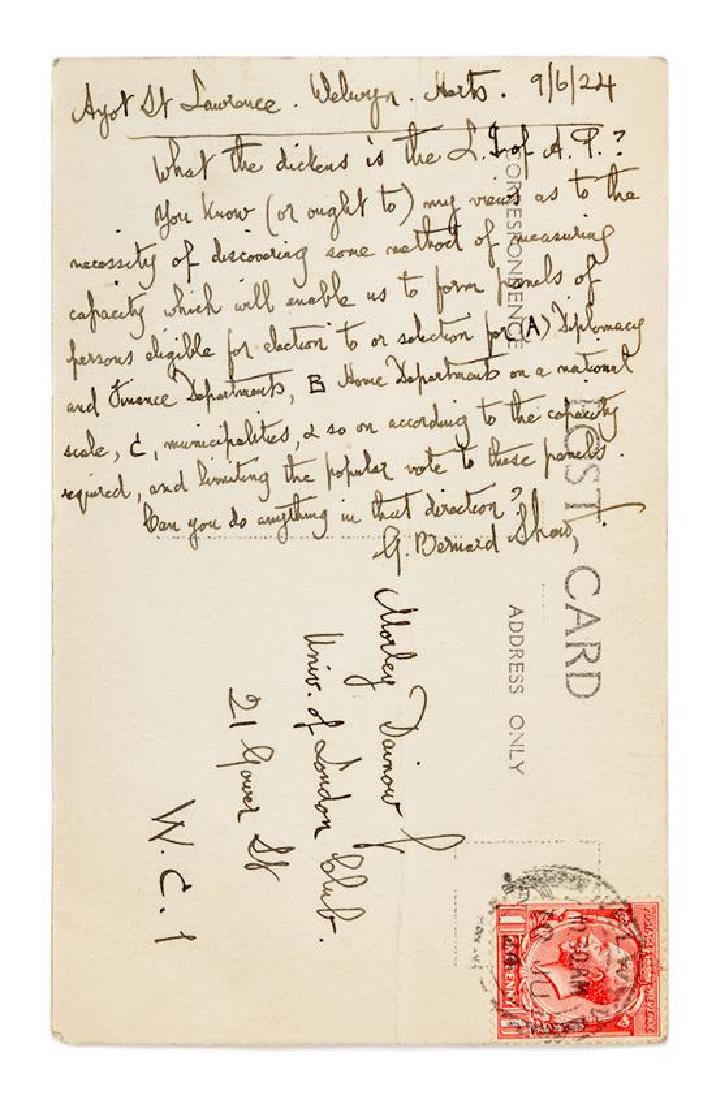 Ayot St Lawrence. Welwyn. Herts. 9/6/24
What the dickens is the L. I. of A. P.?
You know (or ought to) my views as to the
necessity of discovering some method of measuring
capacity which will enable us to form panels of
persons eligible for election to or selection for (A) Diplomacy
and Finance Departments, B Home Departments on a national
scale, C, municipalities, & so on according to the capacity
required, and limiting the popular vote to these panels.
Can you do anything in that direction?
G. Bernard Shaw
CORRESPONDENCE
POST CARD
ADDRESS ONLY
Morley Dainow
Univ. of London Club.
21 Gower St
W.C.1
10.30AM
10 JU
24
ONE PENNY